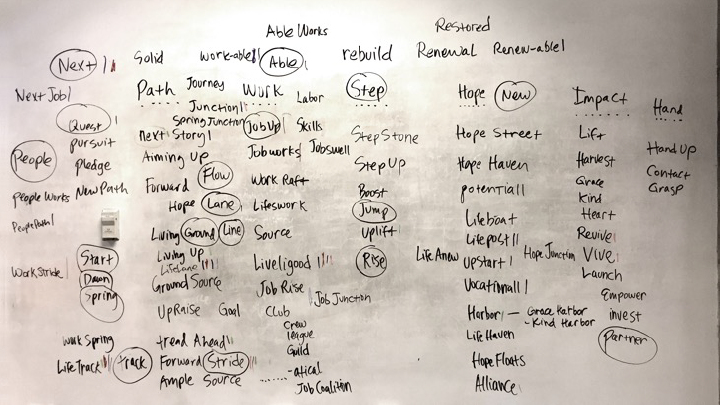 Able Works
Restored
Next
Solid
work-able
Able
rebuild
Renewal
Renew-able
Next Job
Path
Journey
Work
Labor
Step
Hope
New
Impact
Hand
Quest
Junction
Spring Junction
Job Up
Skills
pursuit
next Story
StepStone
Hope Street
Lift
People
pledge
Aiming Up
Jobworks
Jobswell
StepUp
Hope Haven
Harvest
Hand Up
People Works
New Path
Forward
Flow
Work Raft
Boost
potential
Grace
Contact
Kind
Grasp
People Path
Hope
Lane
Lifeswork
Jump
Lifeboat
Heart
Living
Ground
Line
Source
uplift
Lifepost
Revive
Start
Living Up
LifeLane
Live|igood
Rise
Life Anew
upstart
Hope Junction
Vive
Work Stride
Dawn
Ground Source
Job Rise
Vocational
Launch
Spring
UpRaise
Goal
Club
Job Junction
Harbor
Grace Harbor
- Kind Harbor
Empower
invest
Crew
league
Work Spring
tread Ahead
Guild
Life Haven
partner
LifeTrack
track
Forward
Stride
-atical
Hope Floats
Ample Source
Job Coalition
Alliance